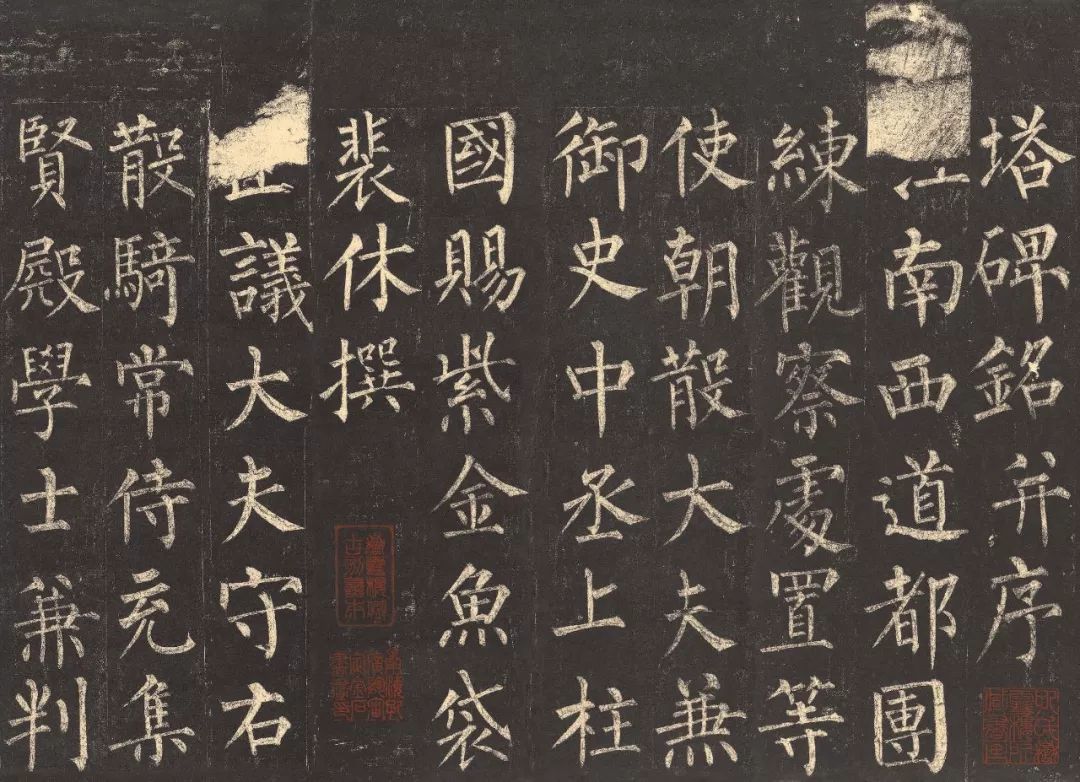 塔碑銘并序
南西道都團
練觀察處置等
使朝散大夫兼
御史中丞上柱
國賜紫金魚袋
裴休撰
議大夫守右
散騎常侍充集
賢殿學士兼判